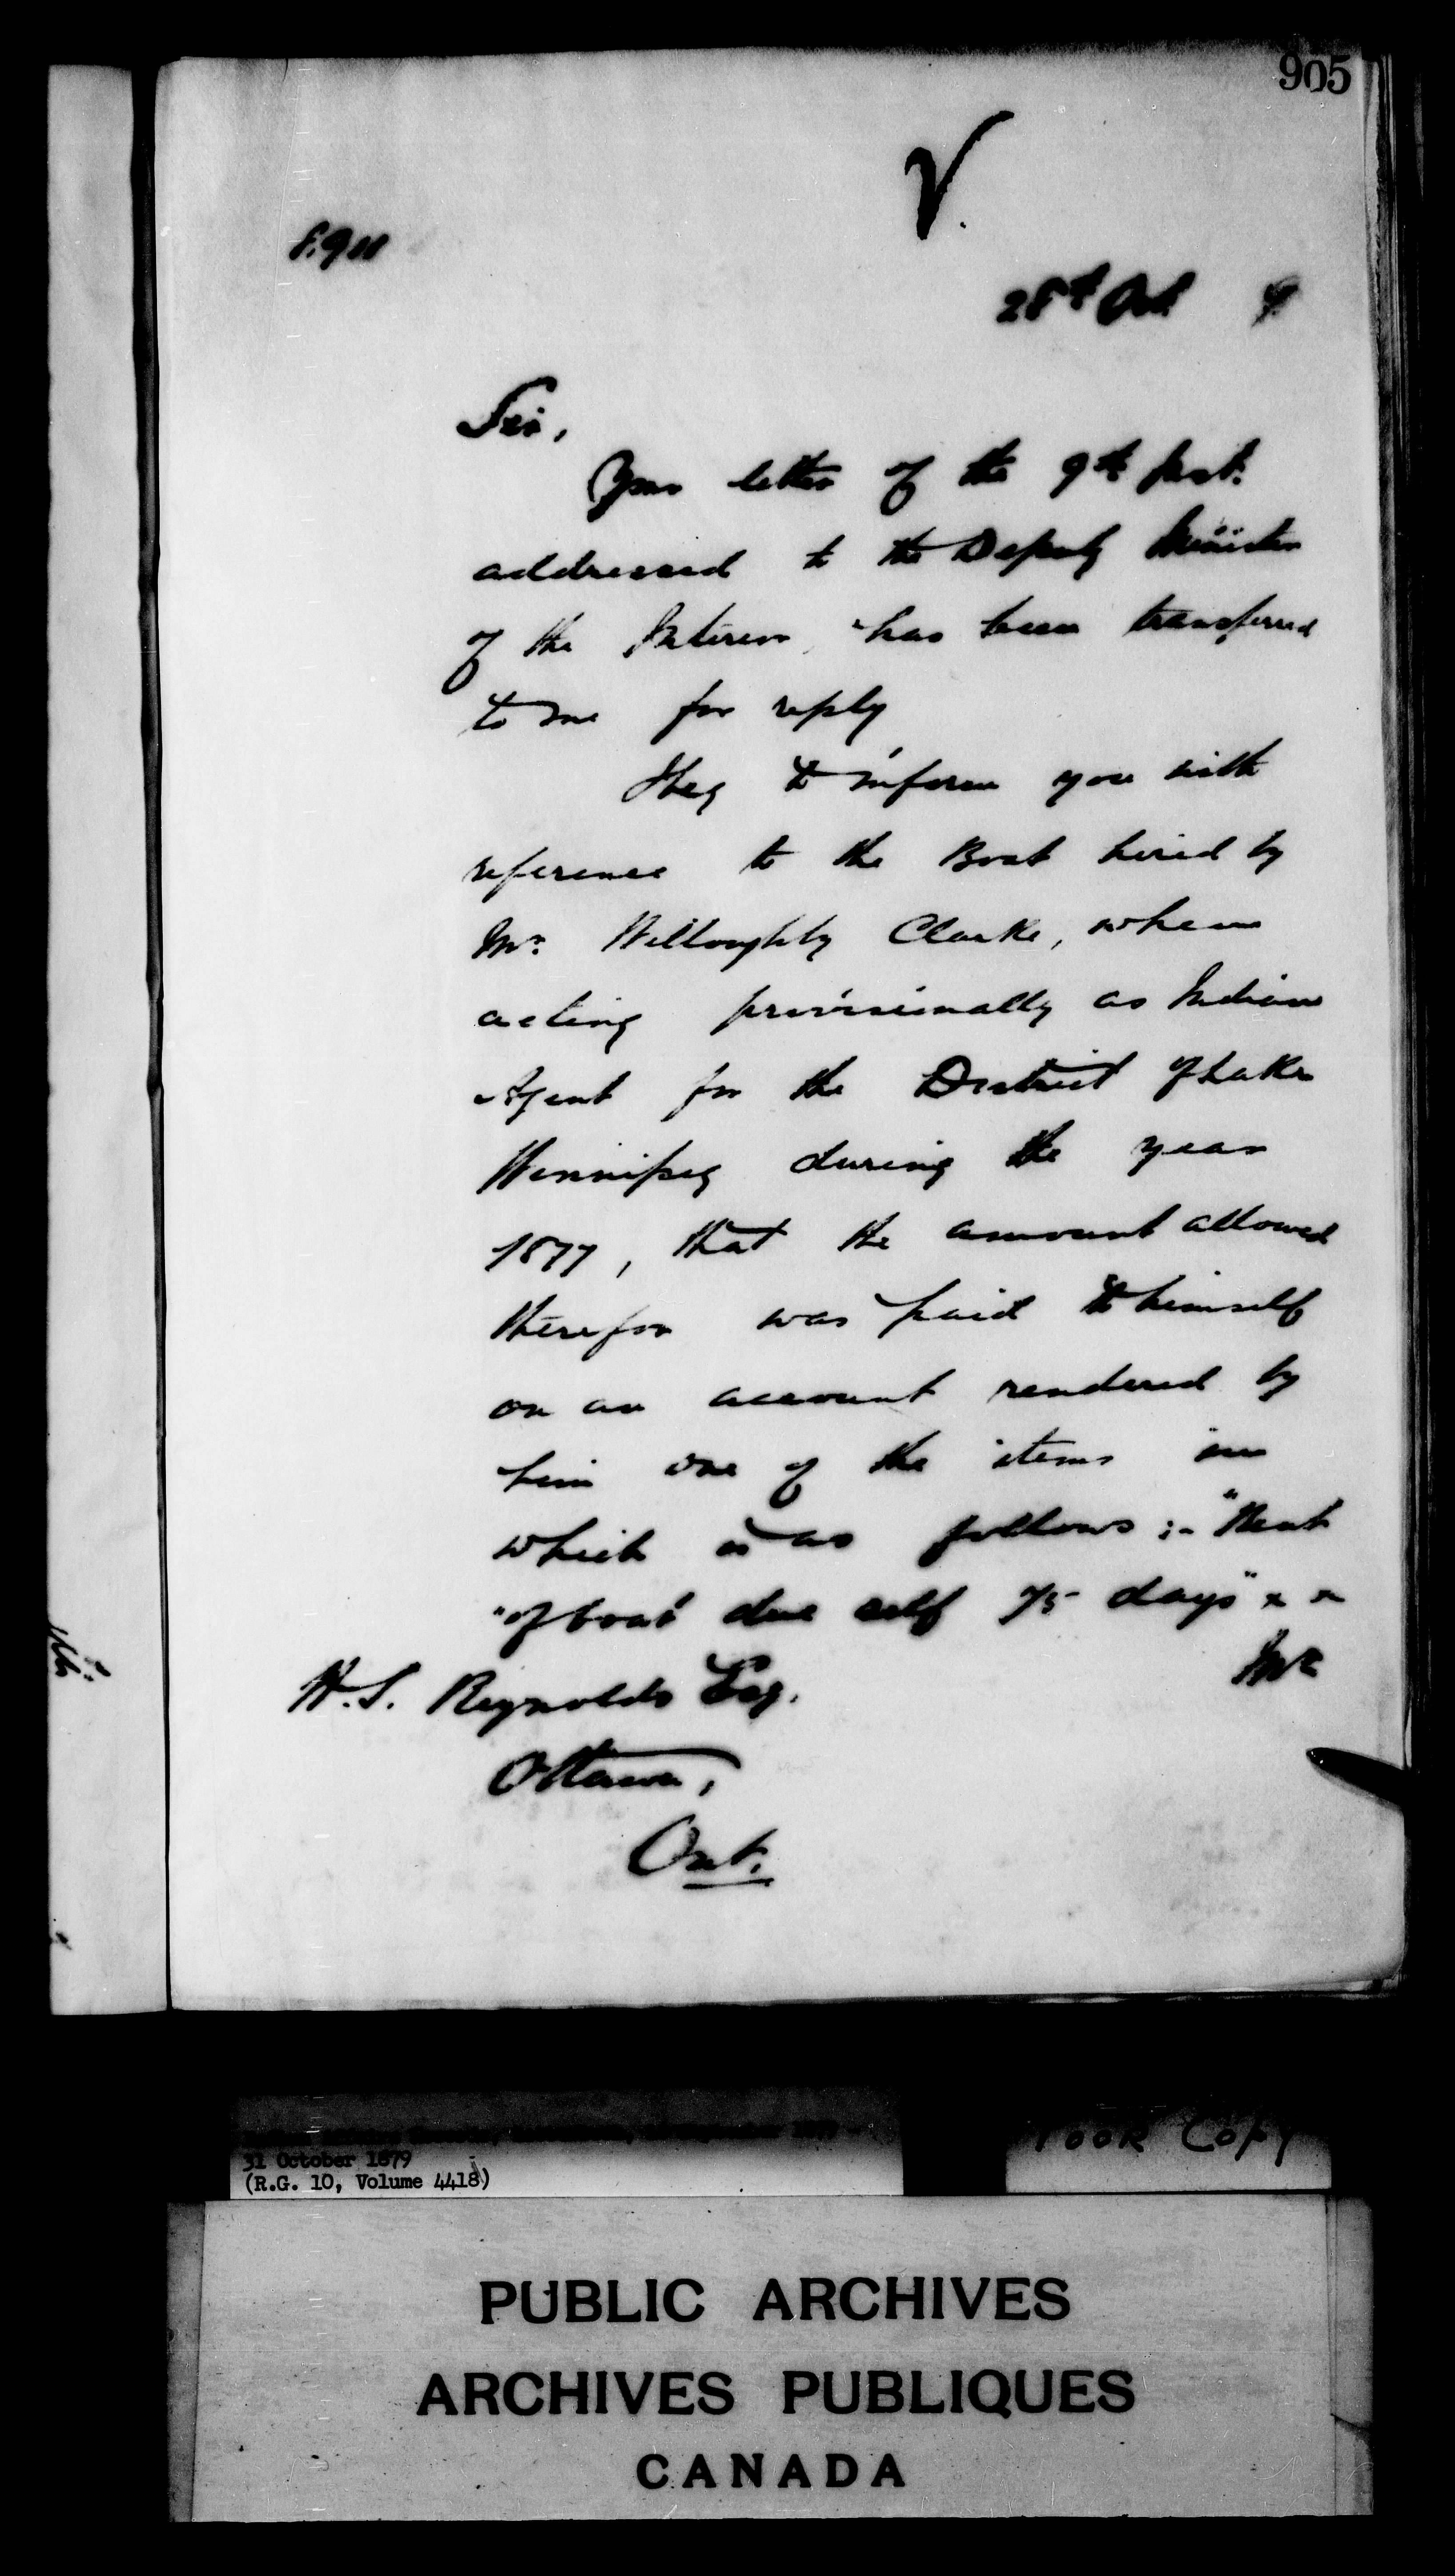 905
V.
28th Oct 9
Sir,
Your letter of the 9th Inst.
addressed to the Deputy Minister
of the Interior, has been transferred
to me for reply
I beg to inform you with
reference to the Boat hired by
Mr. Willoughby Clarke, when
acting provisionally as Indian
Agent for the District of Lake
Winnipeg during the year
1877, that the amount allowed
therefor was paid to himself
on an account rendered by
him one of the items in
which is as follows :- "Rent
"of boat due self 75 days" x x
Mr
W. S. Reynolds Esq.
Ottawa,
Ont.
31 October 1879
(R.G. 10, Volume 4418)
Poor Copy
PUBLIC ARCHIVES
ARCHIVES PUBLIQUES
CANADA